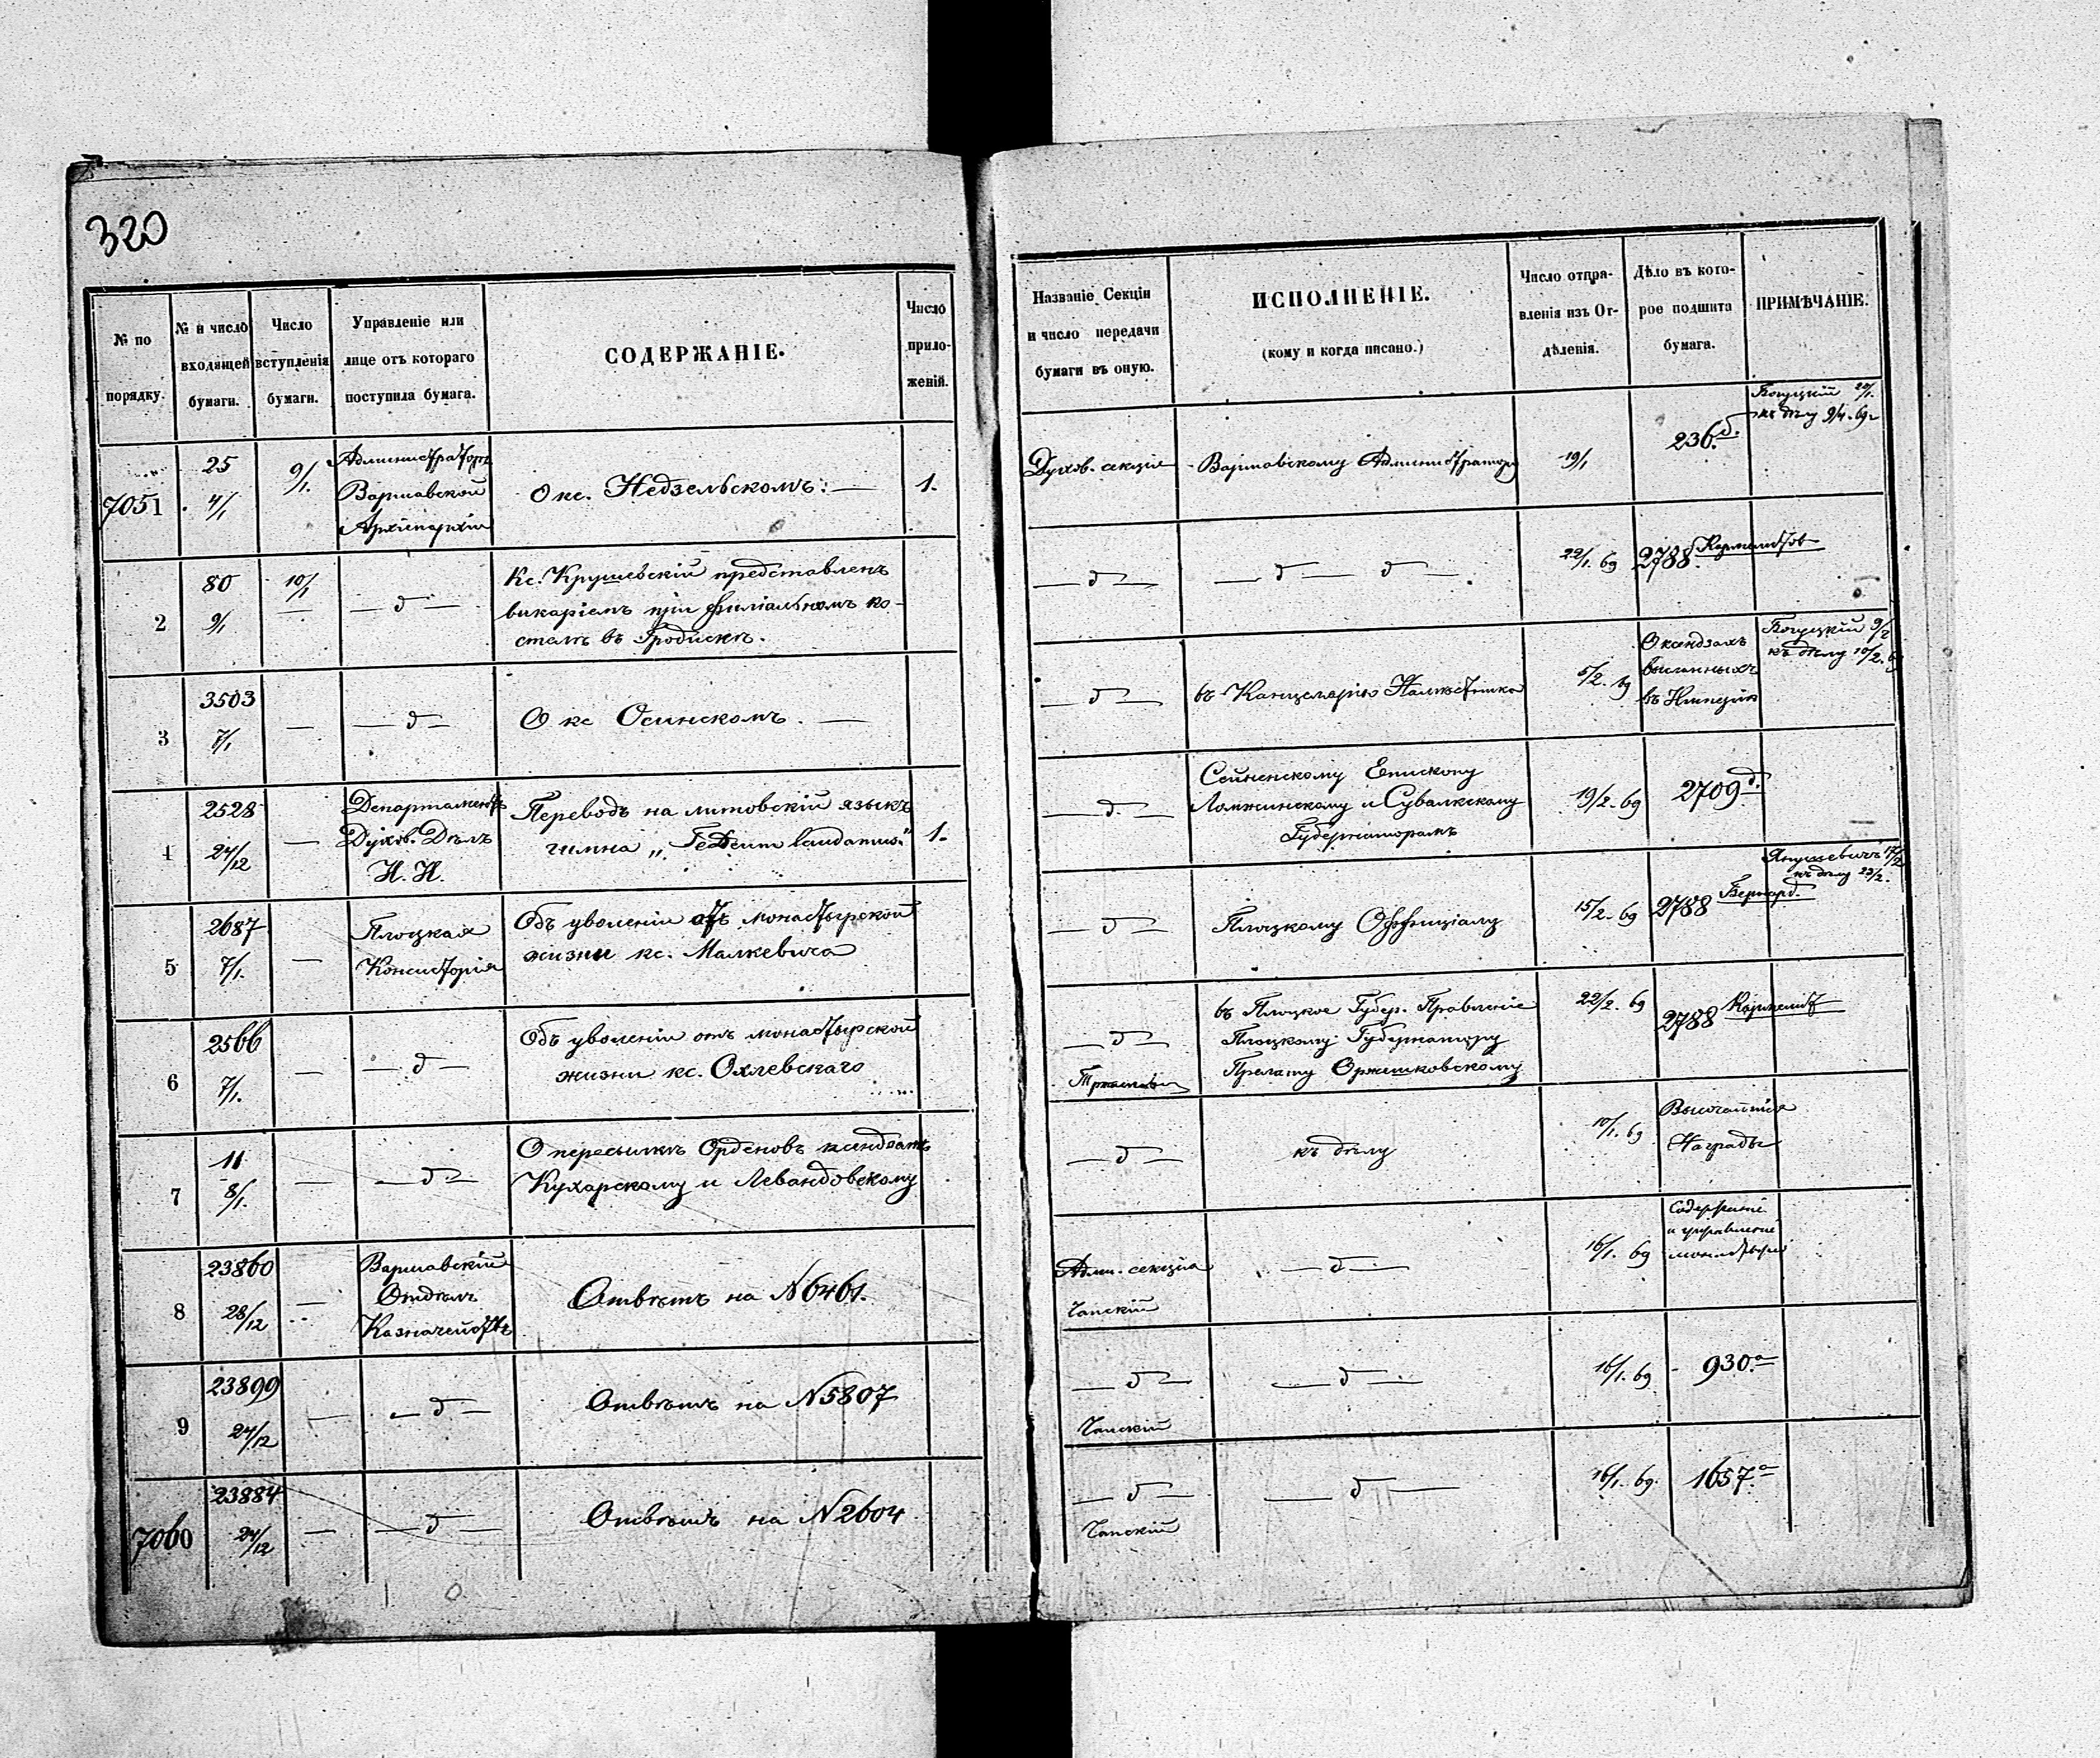 320
№ по порядку.
№ и число входящей бумаги.
Число вступленія бумаги.
Управленіе или лице отъ котораго поступила бумага.
СОДЕРЖАНІЕ.
Число приложеній.
Названіе Секціи и число передачи бумаги въ оную.
ИСПОЛНЕНІЕ.
(кому и когда писано.)
Число отправленія изъ Отдѣленія.
Дѣло въ которое подшита бумага.
ПРИМѢЧАНІЕ.
7051
25
4/1
9/1.
Администраторъ
Варшавской
Архіепархіи
О кс. Недзельскомъ. —
1.
Духов. секція
Варшавскому Администратору
19/1
236 б.
Богуцкій 29/1.
къ дѣлу
2
80
9/1
10/1
— д —
Кс. Крушевскій представленъ
викаріемъ при филіальномъ ко-
стелѣ въ Гродискѣ.
— д —
— д — д —
22/1. 69
2788.
3
3503
7/1
—
— д —
О кс Осинскомъ. —
— д —
въ Канцелярію Намѣстника
5/2. 69
О ксендзахъ
высланныхъ
въ Имперію
Богуцкій 9/2
къ дѣлу 10/2. 69
4
2528
24/12
—
Департаментъ
Духов. Дѣлъ
И. И.
Переводъ на литовскій языкъ
гимна „Te Deum laudamus“
1.
— д. —
Сейненскому Епископу
Ломжинскому и Сувалкскому
Губернаторамъ
19/2. 69
2709 д.
5
2687
7/1.
—
Плоцкая
Консисторія
Объ уволеніи отъ монастырской
жизни кс. Малкевича
— д —
Плоцкому Оффиціалу
15/2. 69
2788
Бернард.
Янушевичъ 17/2
къ дѣлу 23/2.
6
2566
7/1.
—
— д —
Объ уволеніи отъ монастырской
жизни кс. Охлевскаго
— д —
въ Плоцкое Губер. Правленіе
Плоцкому Губернатору
Прелату Оржешковскому
22/2. 69
2788
7
11
8/1.
—
— д —
О пересылкѣ Орденовъ ксендзамъ
Кухарскому и Левандовскому
— д —
къ дѣлу
10/1. 69
Высочайшія
Награды
8
23860
28/12
—
Варшавскій
Отдѣлъ
Казначейства
Отвѣтъ на N 6461.
Адми. секція
Чапскій
— д —
16/1. 69
Содержаніе
и управленіе
9
23899
24/12
—
— д —
Отвѣтъ на N 5807
— д —
Чапскій
— д —
16/1. 69
930 а
7060
23884
24/12
—
— д —
Отвѣтъ на N 2604
— д —
Чапскій
— д —
16/1. 69.
1657 а